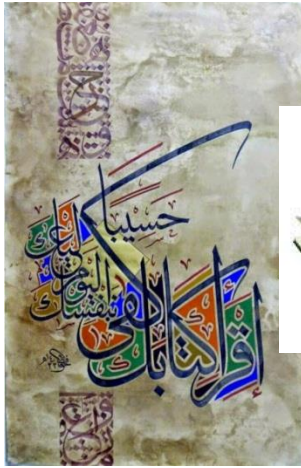 إقرأ كتابك كفى
بنفسك
اليوم
عليك
حسيبًا